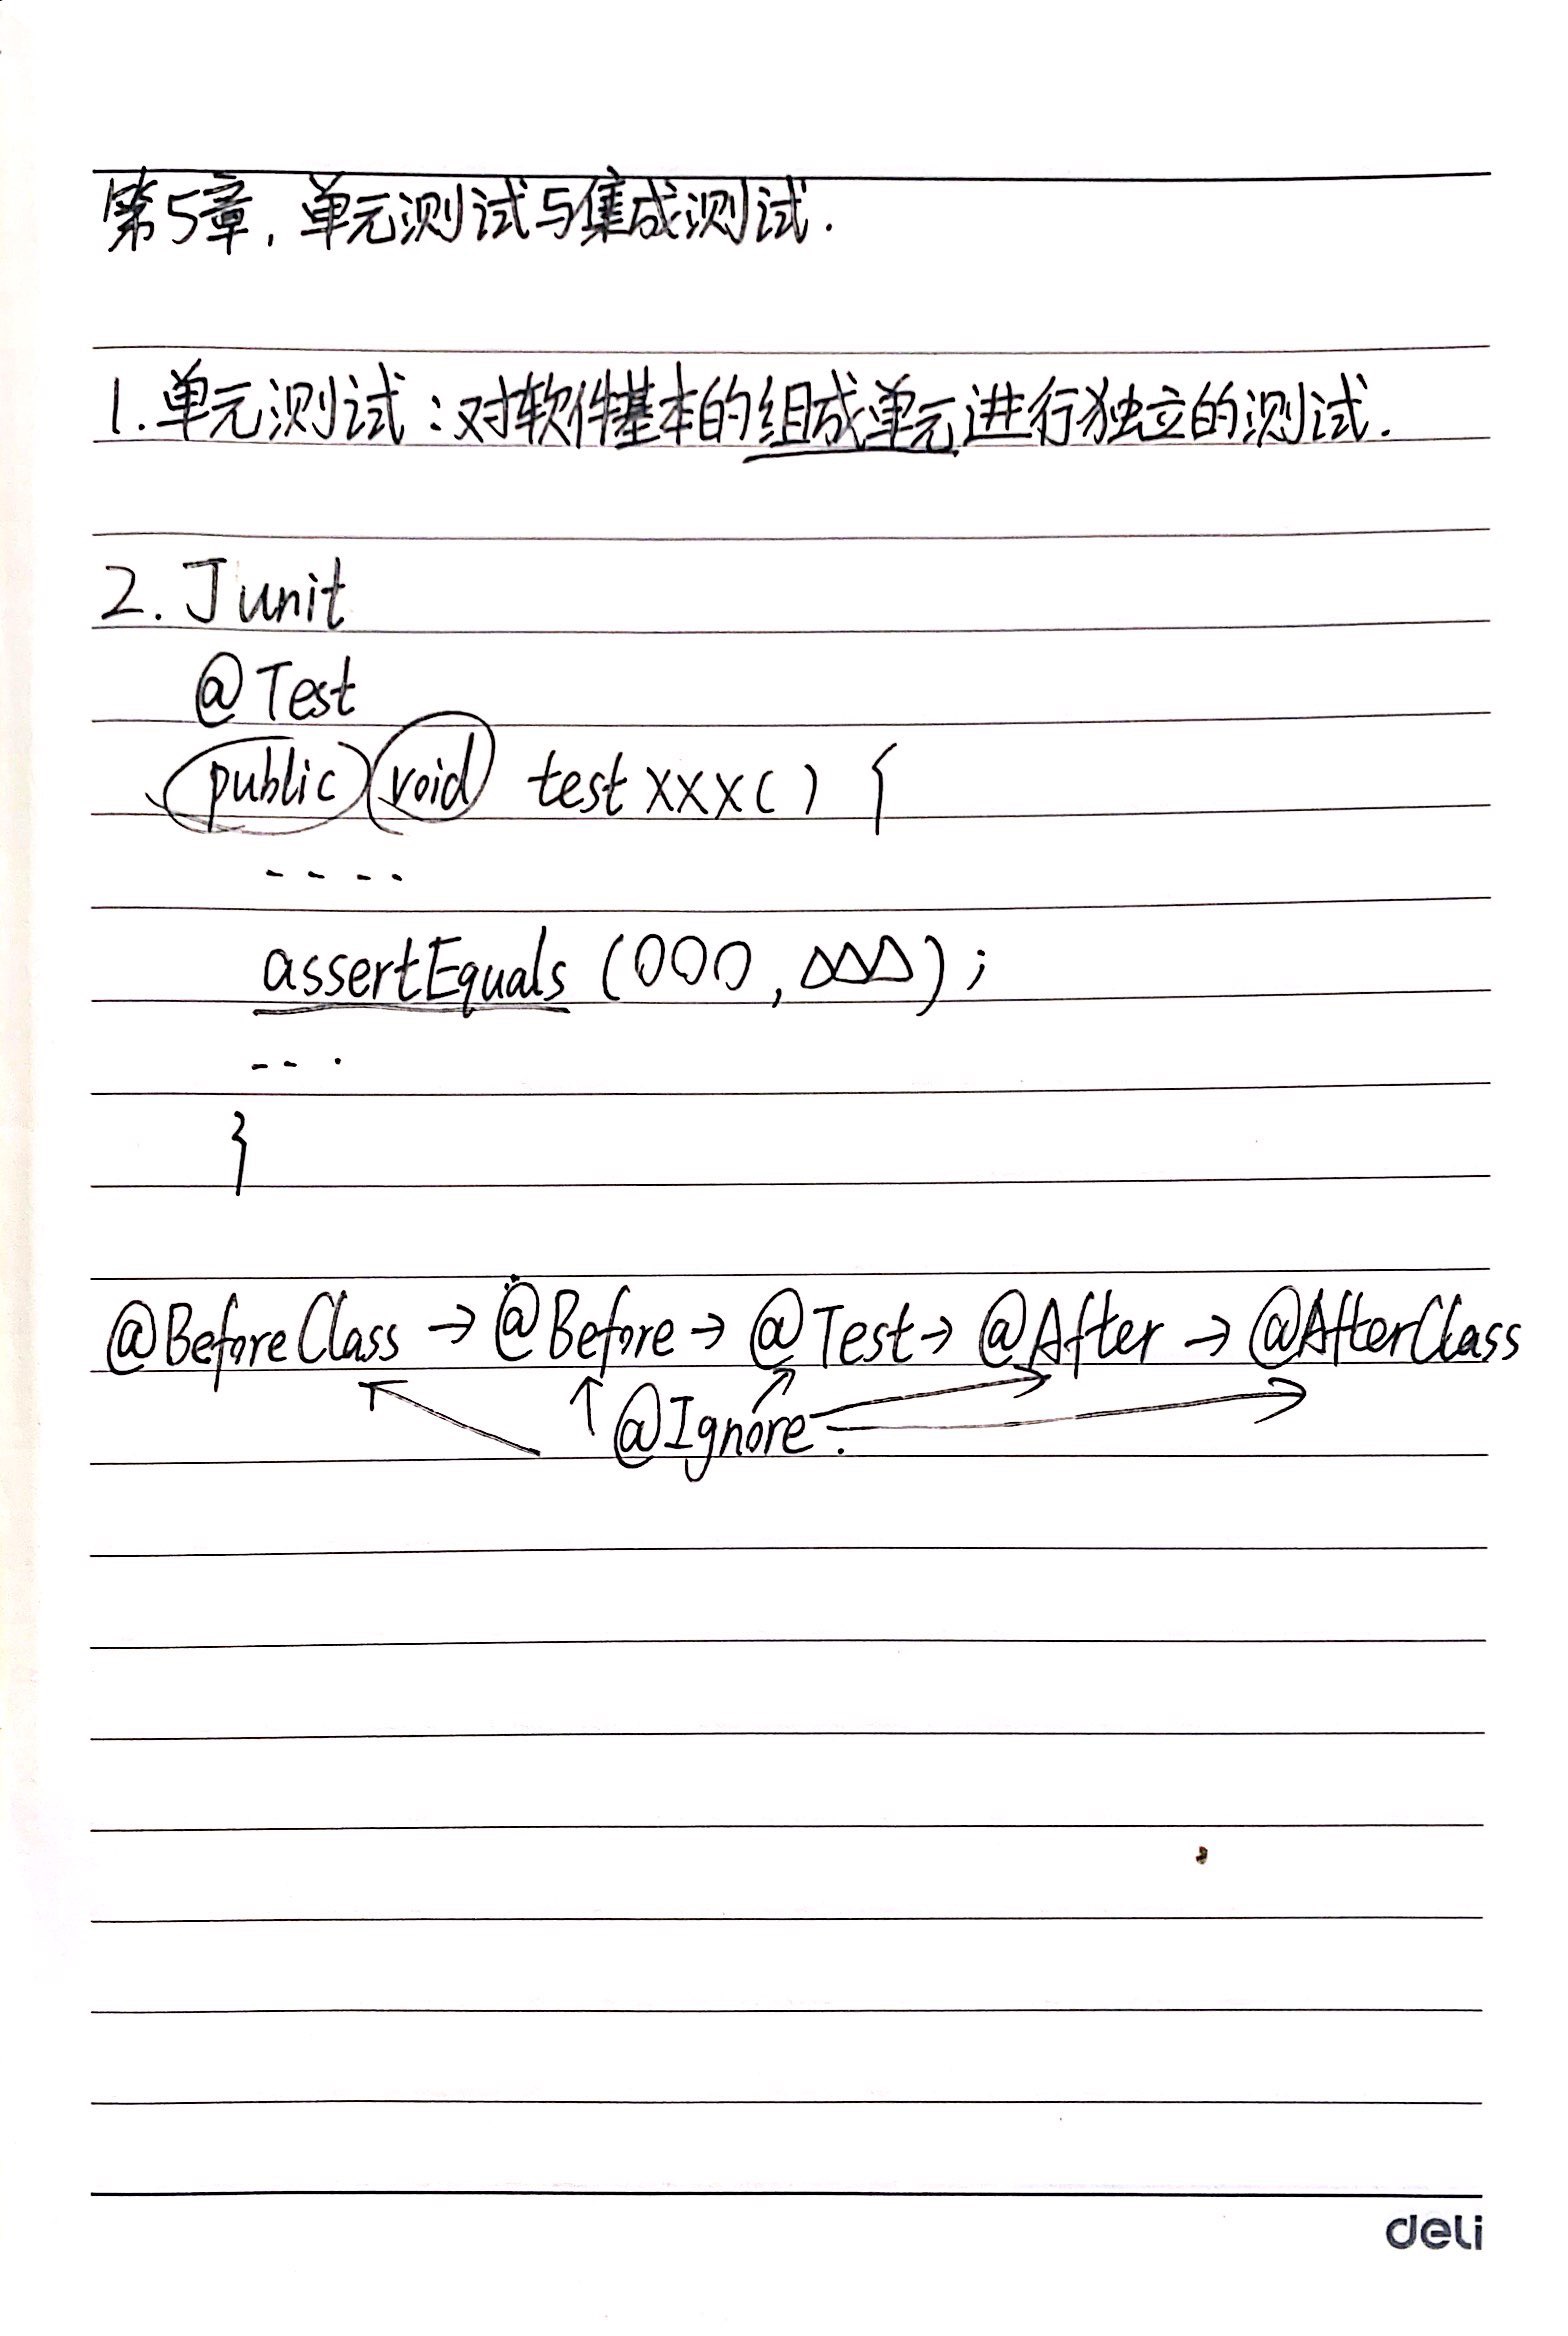 第5章，单元测试与集成测试.
1.单元测试：对软件基本的组成单元进行独立的测试.
2. Junit
@Test
public void testxxx() {
----
assertEquals (OOO, △△△);
-- .
}
@BeforeClass → @Before → @Test → @After → @AfterClass
@Ignore.
deli